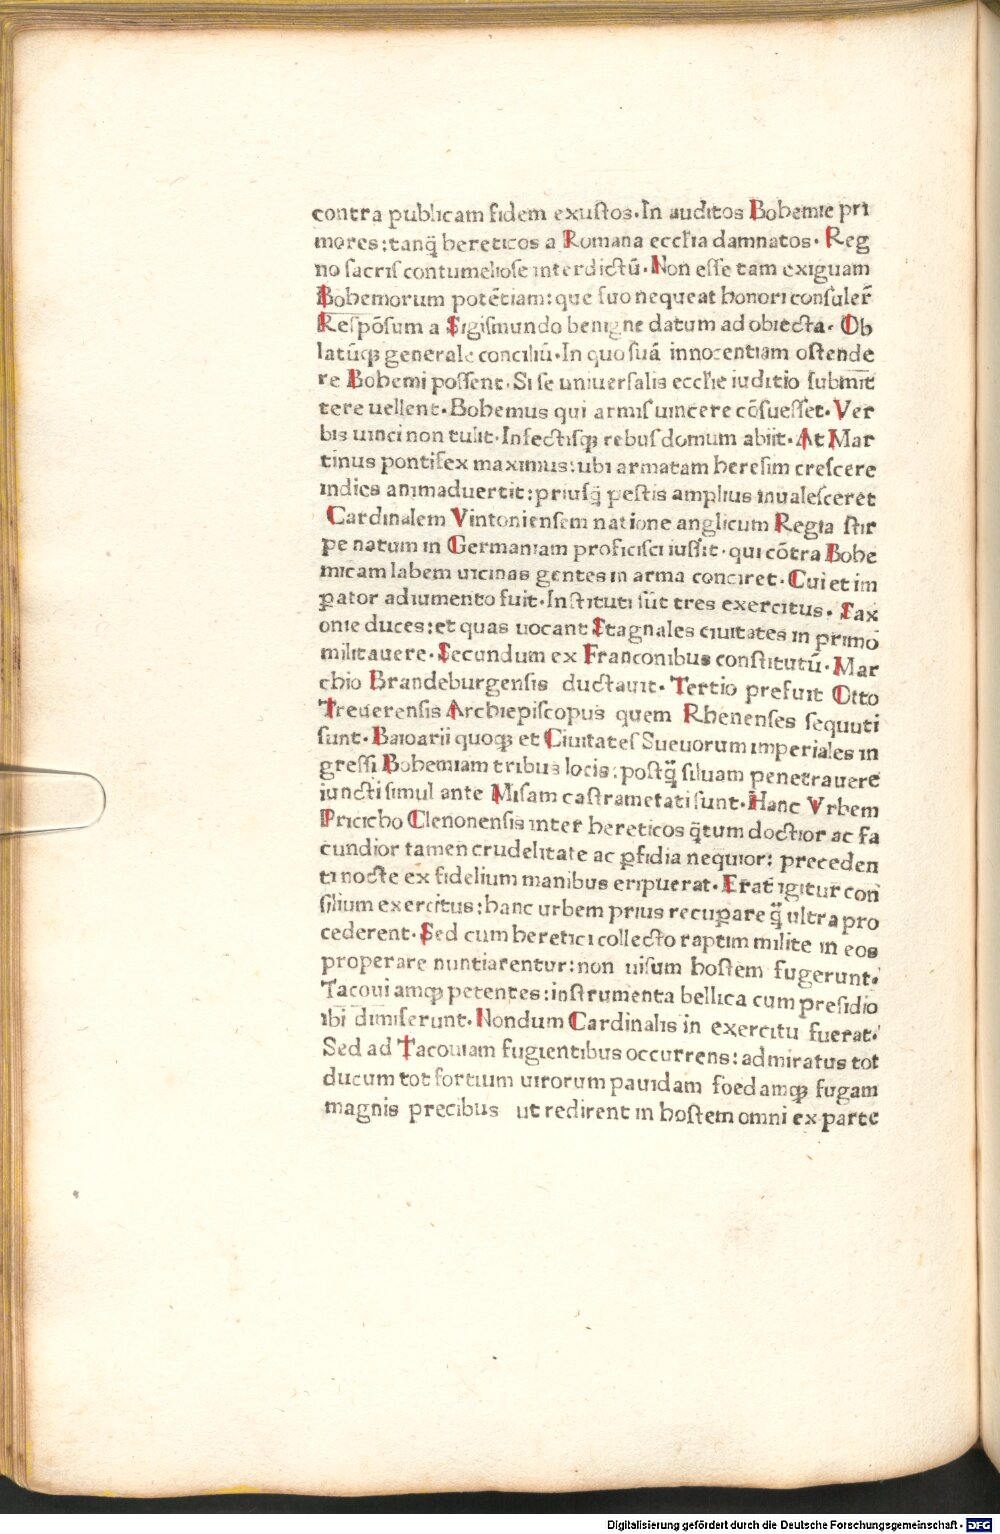 contra publicam fidem exustos·In auditos Bohemie pri
mores:tanq̃ hereticos a Romana ecclia damnatos· Reg
no sacris contumeliose interdictū·Non esse tam exiguam
Bohemorum potētiam:que suo nequeat honori consuler̄
Respōsum a Sigismundo benigne datum ad obiecta· Ob
latūqꝫ generale conciliū·In quo suā innocentiam ostende
re Bohemi possent·Si se uniuersalis ecclie iuditio submit
tere uellent·Bohemus qui armis uincere cōsuesset·Ver
bis uinci non tulit·Infectisqꝫ rebus domum abiit·At Mar
tinus pontifex maximus:ubi armatam heresim crescere
indies animaduertit:priusq̃ pestis amplius inualesceret
Cardinalem Vintoniensem natione anglicum Regia stir
pe natum in Germaniam proficisci iussit·qui cōtra Bohe
micam labem uicinas gentes in arma conciret·Cui et im
ꝑator adiumento fuit·Instituti sūt tres exercitus· Sax
onie duces:et quas uocant Stagnales ciuitates in primo
militauere·Secundum ex Franconibus constitutū·Mar
chio Brandeburgensis ductauit·Tertio prefuit Otto
Treuerensis Archiepiscopus quem Rhenenses sequuti
sunt·Baioarii quoqꝫ et Ciuitates Sueuorum imperiales in
gressi Bohemiam tribus locis:postq̃ siluam penetrauere
iuncti simul ante Misam castrametati sunt·Hanc Vrbem
Pricicho Clenonensis inter hereticos q̃tum doctior ac fa
cundior tamen crudelitate ac ꝑfidia nequior: preceden
ti nocte ex fidelium manibus eripuerat·Erat igitur con
silium exercitus:hanc urbem prius recuꝑare q̃ ultra pro
cederent·Sed cum heretici collecto raptim milite in eos
properare nuntiarentur:non uisum hostem fugerunt·
Tacoui amqꝫ petentes:instrumenta bellica cum presidio
ibi dimiserunt·Nondum Cardinalis in exercitu fuerat·
Sed ad Tacouiam fugientibus occurrens:admiratus tot
ducum tot fortium uirorum pauidam foedamqꝫ fugam
magnis precibus ut redirent in hostem omni ex parte
Digitalisierung gefördert durch die Deutsche Forschungsgemeinschaft - DFG